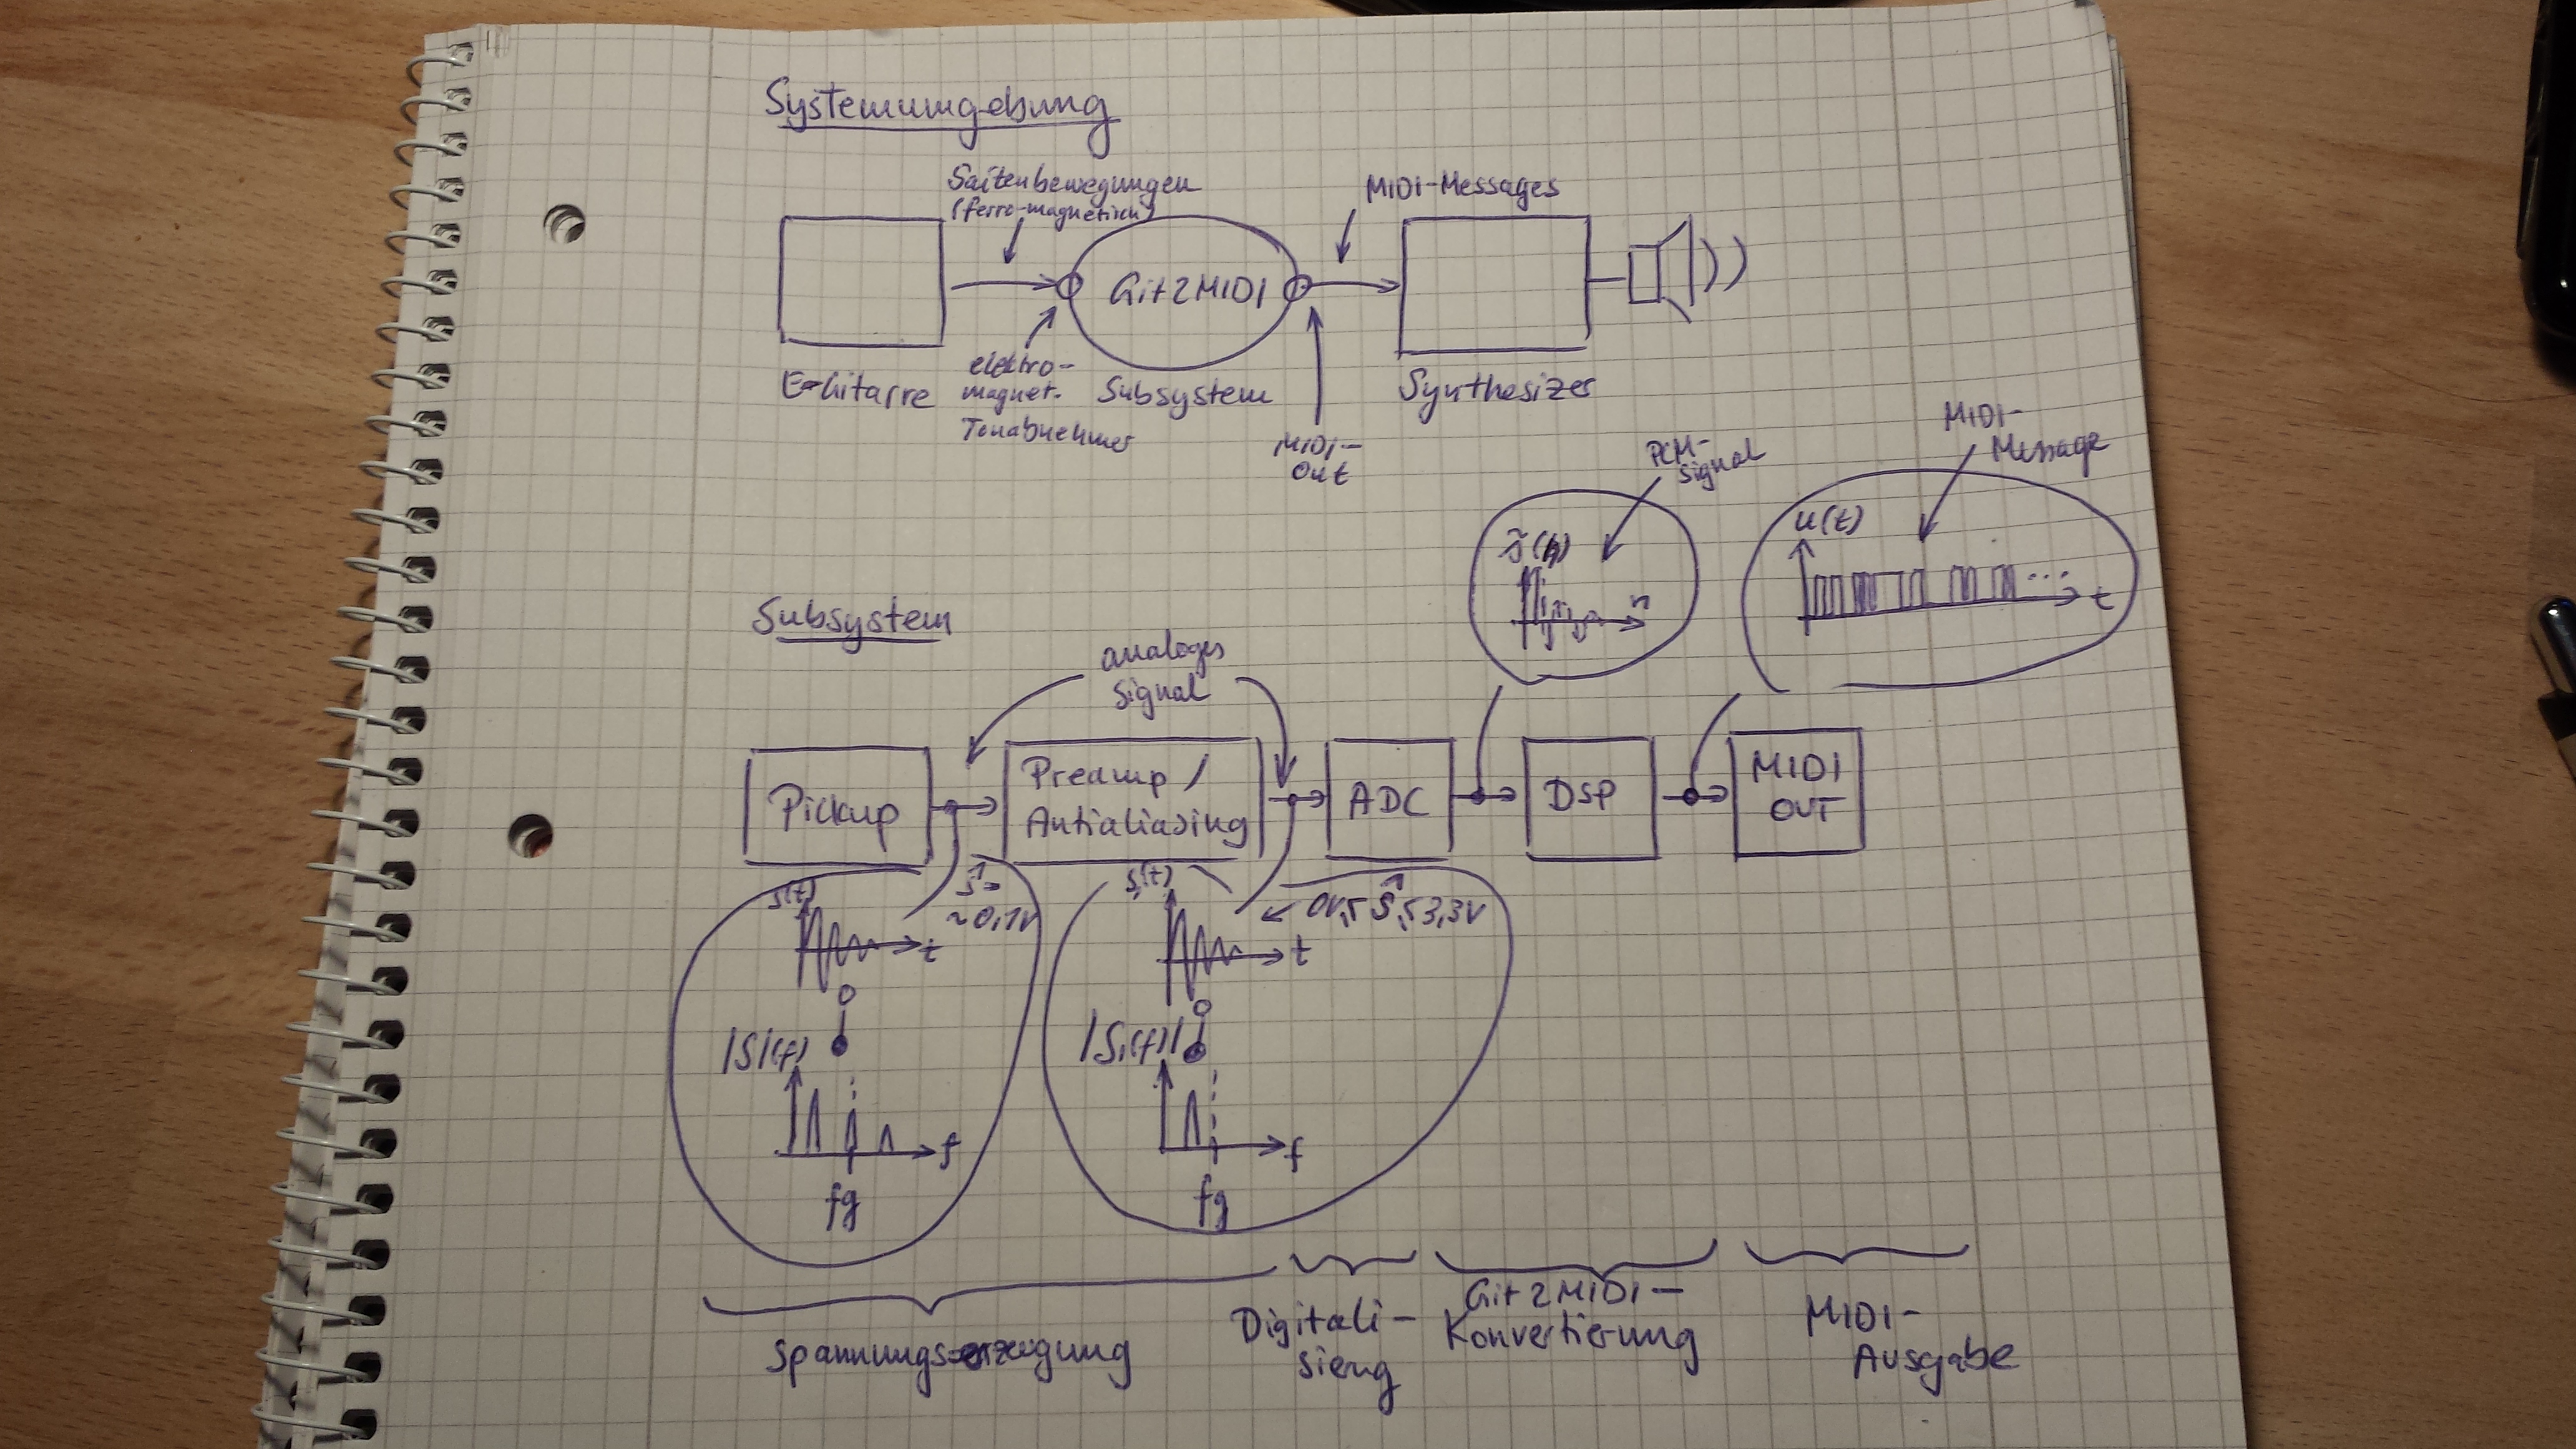 Systemumgebung
Saitenbewegungen
(ferro-magnetisch)
MIDI-Messages
Git2MIDI
E-Gitarre
elektro-
magnet.
Tonabnehmer
Subsystem
MIDI-
Out
Synthesizer
PCM-
Signal
MIDI-
Message
u(t)
n
t
Subsystem
analoges
Signal
Pickup
Preamp /
Antialiasing
ADC
DSP
MIDI
OUT
s(t)
ŝ=
~0,1V
t
|S|(f)
f
fg
s₁(t)
0V ≤ ŝ₁ ≤ 3,3V
t
|S₁(f)|
f
fg
Spannungserzeugung
Digitali-
sieng
Git2MIDI-
Konvertierung
MIDI-
Ausgabe